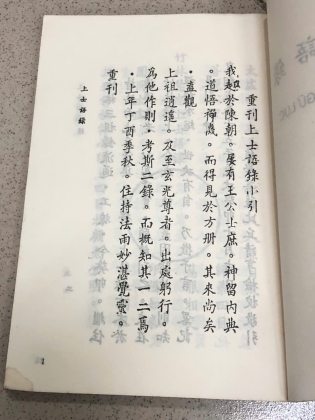 重刊上士語錄小引
我越於陳朝。屢有王公士庶。神留內典
。道悟禪機。而得見於方册。其來尚矣
。直觀
上祖逍遙。及至玄光尊者。出處躬行。
為他作則。考斯二錄。而概知其一二焉
。上年丁酉季秋。住持法雨妙湛覺靈。
重刊
上士語錄